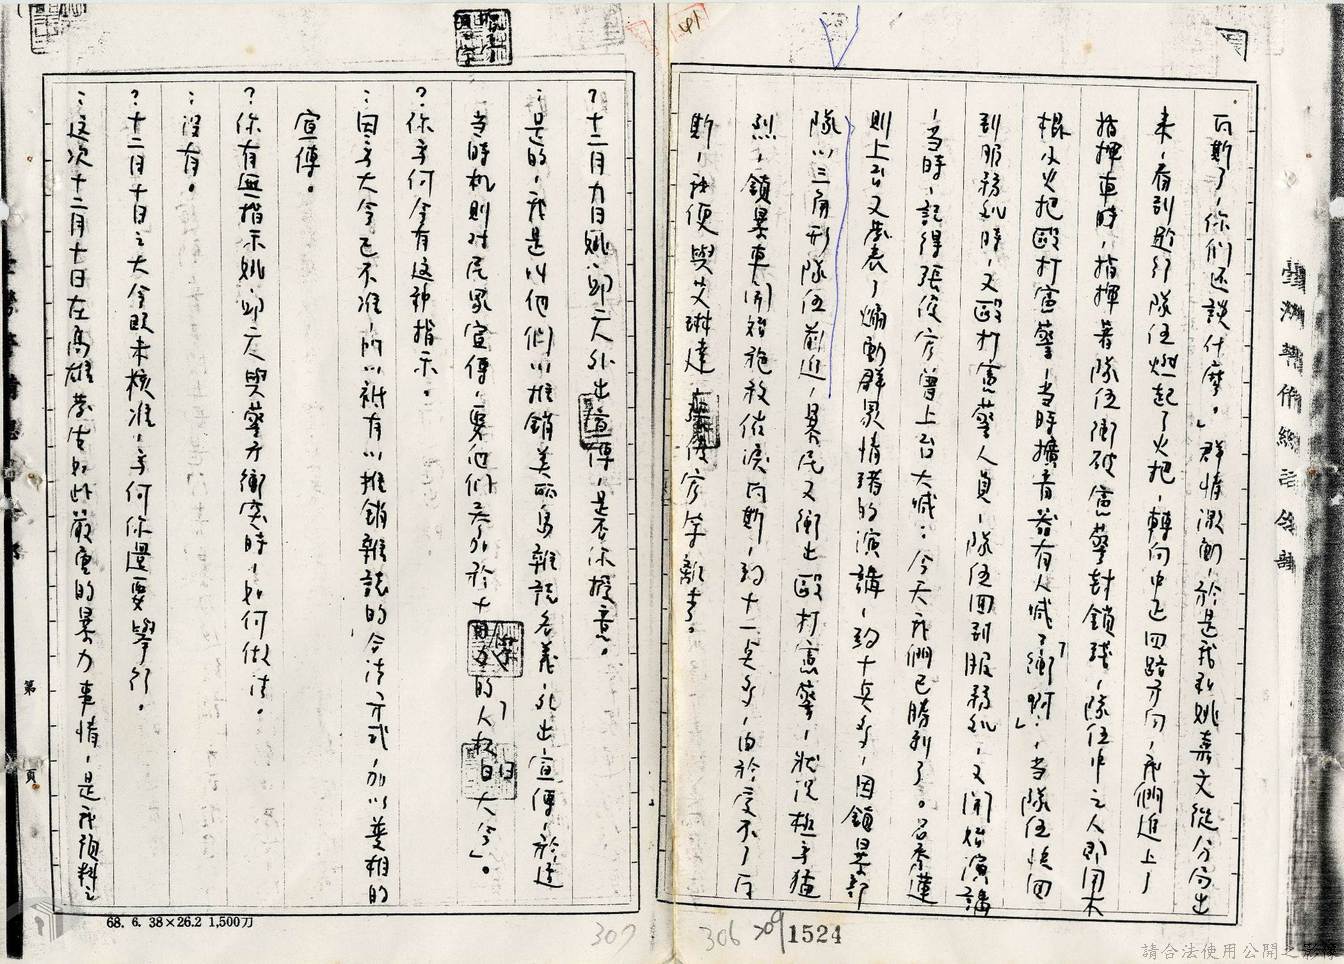 瓦斯了，你们还談什麼。」群情激動，於是我和姚嘉文從分局出
来，看到遊行隊伍燃起了火把，轉向中正四路方向，我們追上了
指揮車時，指揮著隊伍衝破憲警封鎖線，隊伍中之人即用木
棍及火把毆打憲警，当時擴音器有人喊了「衝啊」，当隊伍快回
到服務処時，又毆打憲警人員，隊伍回到服務処，又開始演講
，当時，記得張俊宏曾上台大喊：今天我們已勝利了。呂秀蓮
則上台又發表了煽動群眾情緒的演講，約十点多，因鎮暴部
隊以三角形隊伍前進，暴民又衝出毆打憲警，狀況極為猛
烈，鎮暴車開始施放催淚瓦斯，約十一点多，由於受不了瓦
斯，我便與艾琳達、張俊宏等離去。
?十二月九日姚、邱二人外出宣傳，是否你授意。
:是的，我是叫他們以推銷美丽島雜誌名義，外出宣傳，於適
当時机則对民眾宣傳，要他們參加於十日的「人权日大会」。
?你为何会有这种指示。
:因为大会已不准，所以祇有以推銷雜誌的合法方式，加以變相的
宣傳。
?你有無指示姚、邱二人與警方衝突時，如何做法。
:沒有。
?十二月十日之大会既未核准，为何你還要舉行。
:这次十二月十日在高雄發生如此嚴重的暴力事情，是我預料之
第
頁
68. 6. 38×26.2 1,500刀
307
306
309
1524
臺灣警備總司令部
請合法使用公開之影像